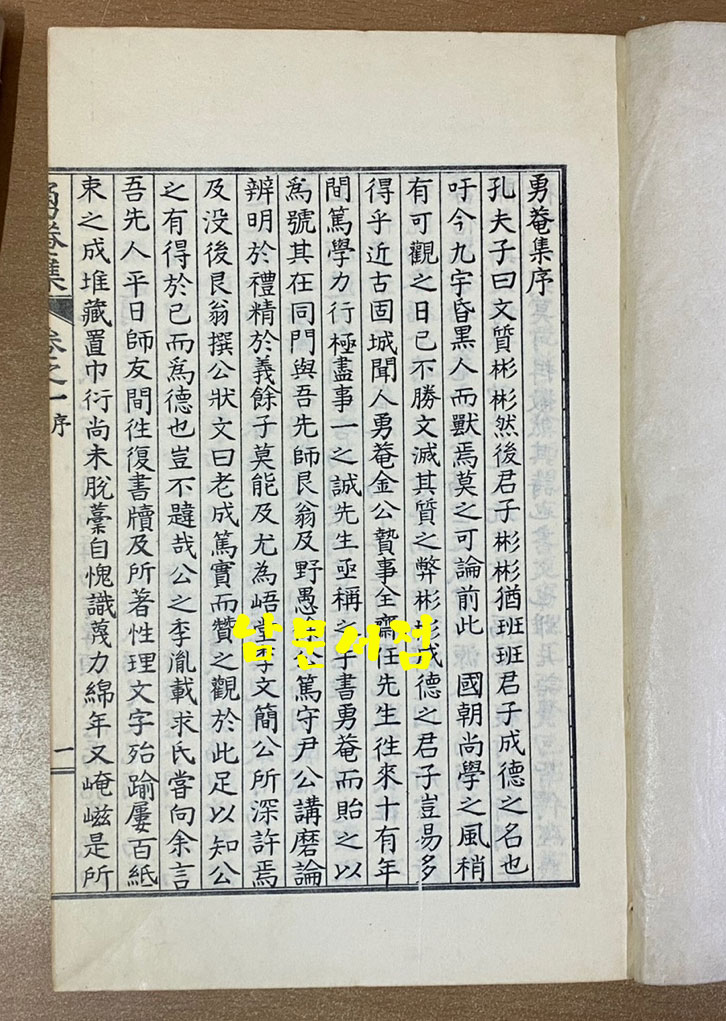 勇菴集序
孔夫子曰文質彬彬然後君子彬彬猶班班君子成德之名也
吁今九宇昏黑人而獸焉莫之可論前此 國朝尚學之風稍
有可觀之日已不勝文滅其質之弊彬彬成德之君子豈易多
得乎近古固城聞人勇菴金公贄事全齋任先生往來十有年
間篤學力行極盡事一之誠先生亟稱之手書勇菴而貽之以
爲號其在同門與吾先師艮翁及野愚 公篤守尹公講磨論
辨明於禮精於義餘子莫能及尤為峿堂李文簡公所深許焉
及没後艮翁撰公狀文曰老成篤實而贊之觀於此足以知公
之有得於己而爲德也豈不韙哉公之季胤載求氏嘗向余言
吾先人平日師友間往復書牘及所著性理文字殆踰屢百紙
束之成堆藏置巾衍尚未脫藁自愧識蔑力綿年又崦嵫是所
勇菴集 卷之一 序
一
남문서점